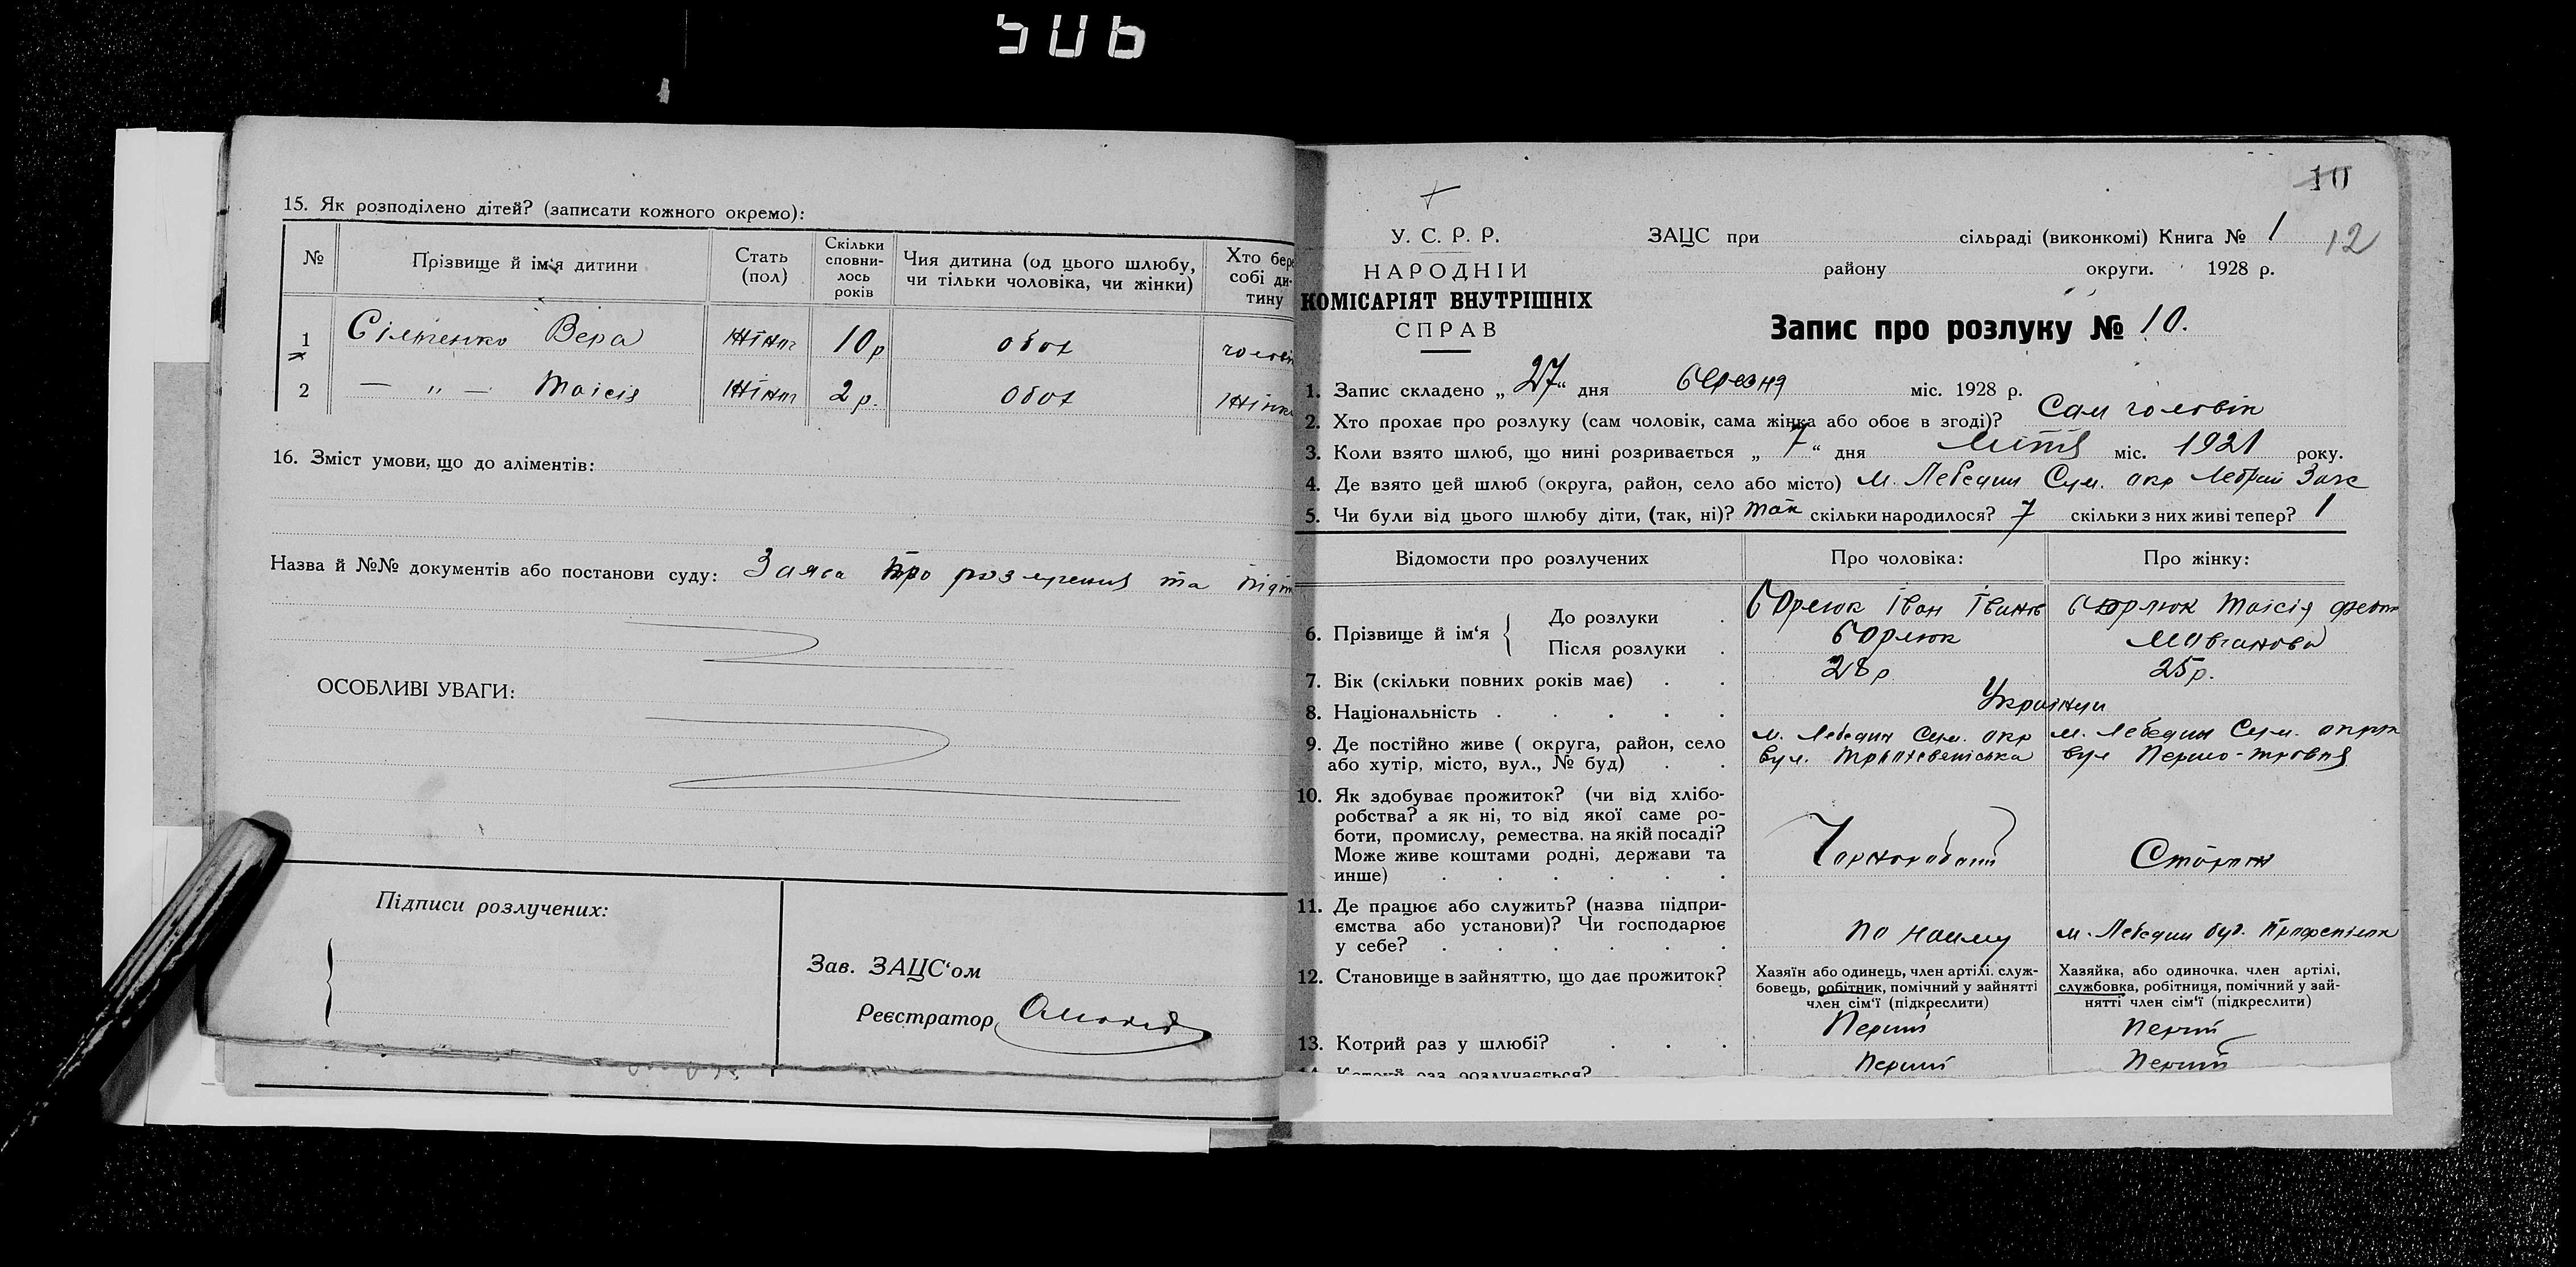 506
15. Як розподілено дітей? (записати кожного окремо):
№ Прізвище й ім'я дитини Стать (пол) Скільки сповни-лось років Чия дитина (од цього шлюбу, чи тільки чоловіка, чи жінки) Хто бере собі ди-тину
1 Вера жінт 10 р обох чоловік
2 — " — Таісія жінт 2 р. обох жінка
16. Зміст умови, що до аліментів:
Назва й №№ документів або постанови суду: Заява про та
ОСОБЛИВІ УВАГИ:
Підписи розлучених:
Зав. ЗАЦС'ом
Реєстратор
10
12
У. С. Р. Р.
НАРОДНІЙ
КОМІСАРІЯТ ВНУТРІШНІХ
СПРАВ
ЗАЦС при сільраді (виконкомі) Книга № 1
району округи. 1928 р.
Запис про розлуку № 10.
1. Запис складено „ 27 “ дня березня міс. 1928 р.
2. Хто прохає про розлуку (сам чоловік, сама жінка або обоє в згоді)? Сам чоловік
3. Коли взято шлюб, що нині розривається „ 7 “ дня міс. 1921 року.
4. Де взято цей шлюб (округа, район, село або місто) м. Лебедин Сум. окр
5. Чи були від цього шлюбу діти, (так, ні)? так скільки народилося? 7 скільки з них живі тепер? 1
Відомости про розлучених Про чоловіка: Про жінку:
6. Прізвище й ім'я До розлуки . Борлюк Іван Іванов Борлюк Таісія
Після розлуки . Борлюк
7. Вік (скільки повних років має) . . 28 р 25 р.
8. Національність . . . . . Українци
9. Де постійно живе ( округа, район, село м. Лебедин Сум. окр м. Лебедин Сум.
або хутір, місто, вул., № буд) . . вул. вул Першо-травня
10. Як здобуває прожиток? (чи від хлібо-
робства? а як ні, то від якої саме ро-
боти, промислу, ремества. на якій посаді?
Може живе коштами родні, держави та
инше) . . . . . . Чорноробот Сторож
11. Де працює або служить? (назва підпри-
ємства або установи)? Чи господарює
у себе? . . . . . . по найму м. Лебедин буд.
12. Становище в зайняттю, що дає прожиток?
Хазяїн або одинець, член артілі, служ-
бовець, робітник, помічний у зайнятті
член сім'ї (підкреслити)
Хазяйка, або одиночка, член артілі,
службовка, робітниця, помічний у зай-
нятті член сім'ї (підкреслити)
13. Котрий раз у шлюбі? . . . Перший Перший
14. Котрий раз розлучається? Перший Перший